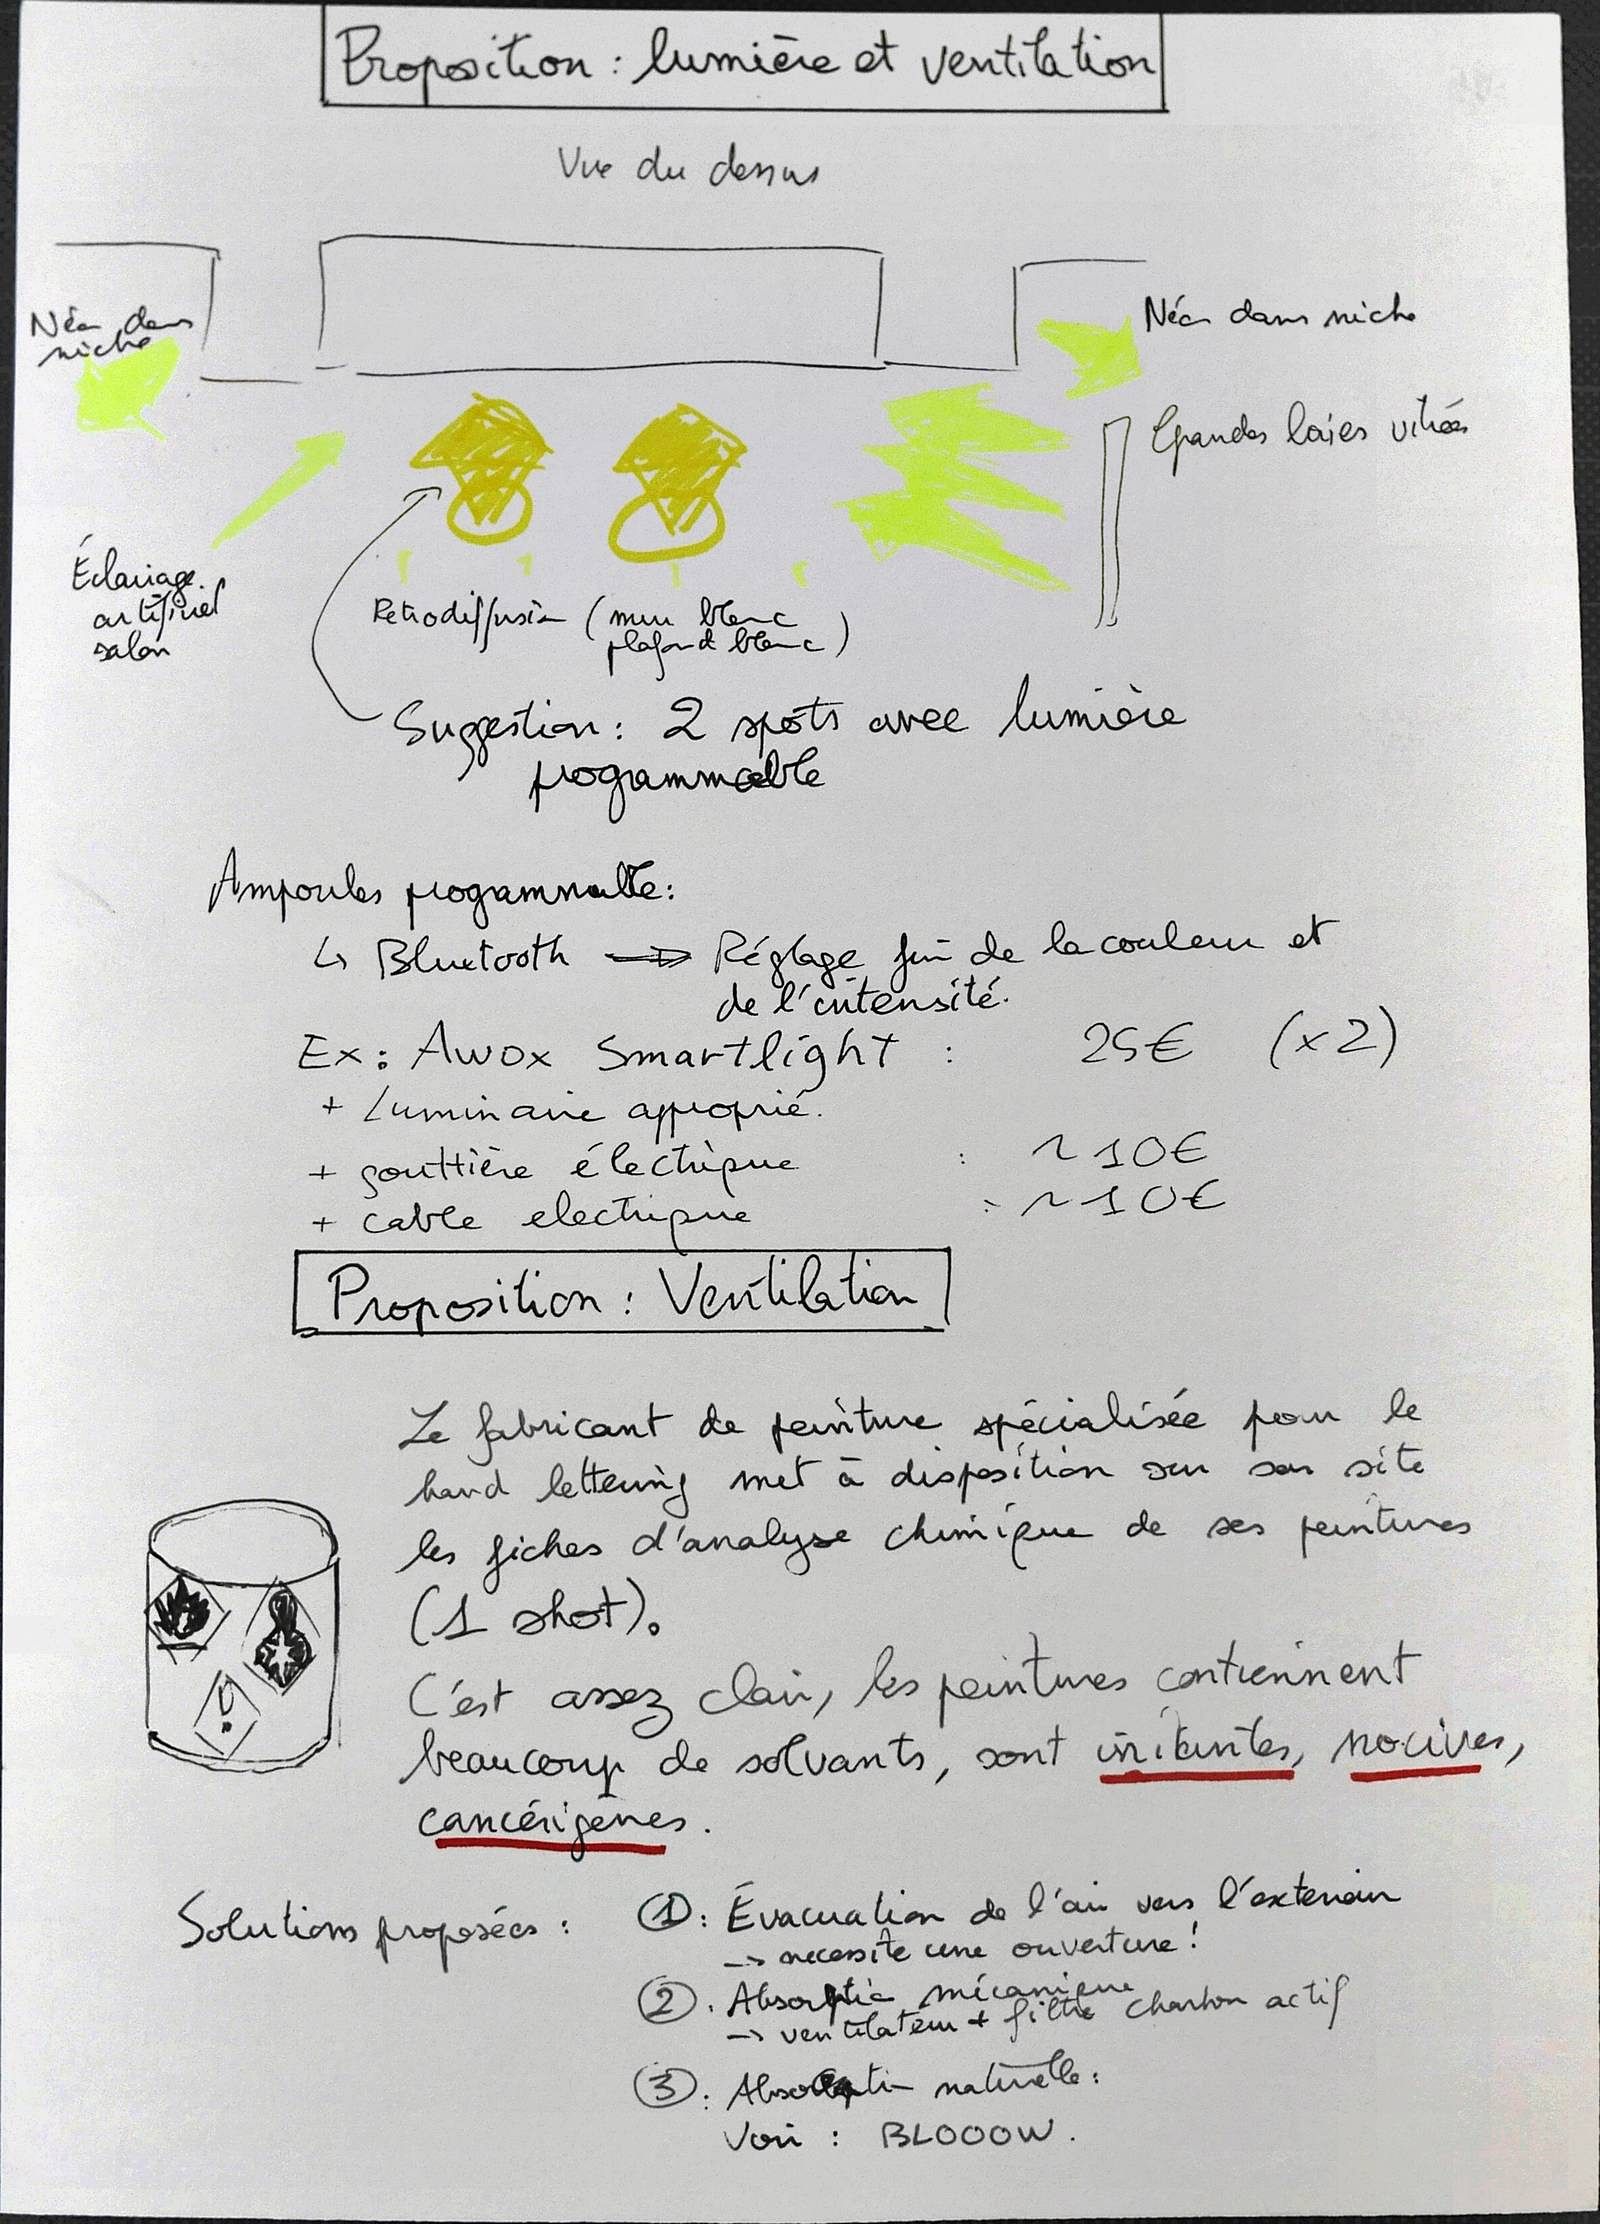 Proposition : lumière et ventilation
Vue du dessus
Néon dans
niche
Néon dans niche
Grandes baies vitrées
Éclairage
artificiel
salon
Retrodiffusion (mur blanc
plafond blanc)
Suggestion : 2 spots avec lumière
programmable
Ampoules programmable :
↳ Bluetooth ⇒ Réglage fin de la couleur et
de l'intensité.
Ex : Awox Smartlight : 25€ (x2)
+ Luminaire approprié.
+ gouttière électrique : ~10€
+ cable electrique : ~10€
Proposition : Ventilation
Le fabricant de peinture spécialisée pour le
hand lettering met à disposition sur son site
les fiches d'analyse chimique de ses peintures
(1 shot).
C'est assez clair, les peintures contiennent
beaucoup de solvants, sont irritantes, nocives,
cancérigènes.
!
Solutions proposées :
① : Évacuation de l'air vers l'exterieur
→ necessite une ouverture !
② : Absorbtion mécanique
→ ventilateur + filtre charbon actif
③ : Absorption naturelle :
Voir : BLOOOW.